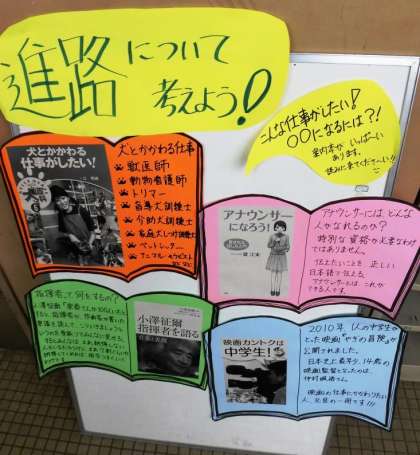 進路について
考えよう!
こんな仕事がしたい!
○○になるには?!
本がいっぱい
あります。
読みに来てください!!
犬とかかわる
仕事がしたい!
犬とかかわる仕事
獣医師
動物看護師
トリマー
盲導犬訓練士
介助犬訓練士
家庭犬しつけ訓練士
ペットシッター
アニマルセラピスト
アナウンサー
になろう!
アナウンサーにはどんな
人がなれるのか?
特別な資格が必要なわけ
ではありません。
伝えたいことを 正しい
日本語で伝える
アナウンサーには これが
できる人です。
指揮者って何をするの?
小澤征爾
指揮者を語る
映画カントクは
中学生!
2010年 1人の中学生が
とった映画「やぎの冒険」が
公開されました。
日本史上最年少、14歳の
映画監督となったのは、
仲村颯悟さん。
映画の仕事にかかわりたい
人、必見の一冊です!!!